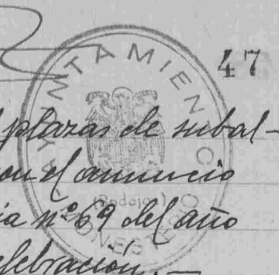 47
AYUNTAMIENTO
(Badajoz)
plazas de subal-
on el anuncio
ia nº 69 del año
elebración.—